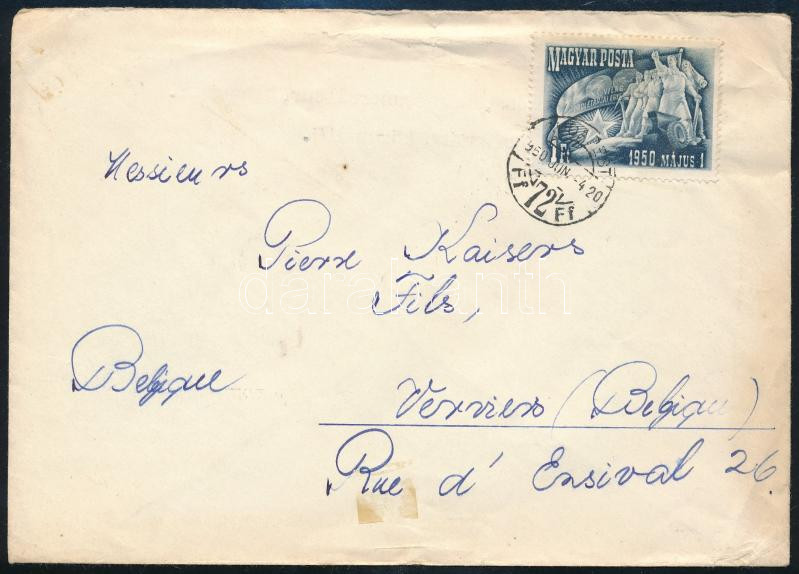 MAGYAR POSTA
1950 MÁJUS 1
950 JUN -4 20
72
Ff Ff
Messieurs
Pierre Kaisers
Fils,
Belgique
Verviers (Belgique)
Rue d' Ensival 26.
darabanth